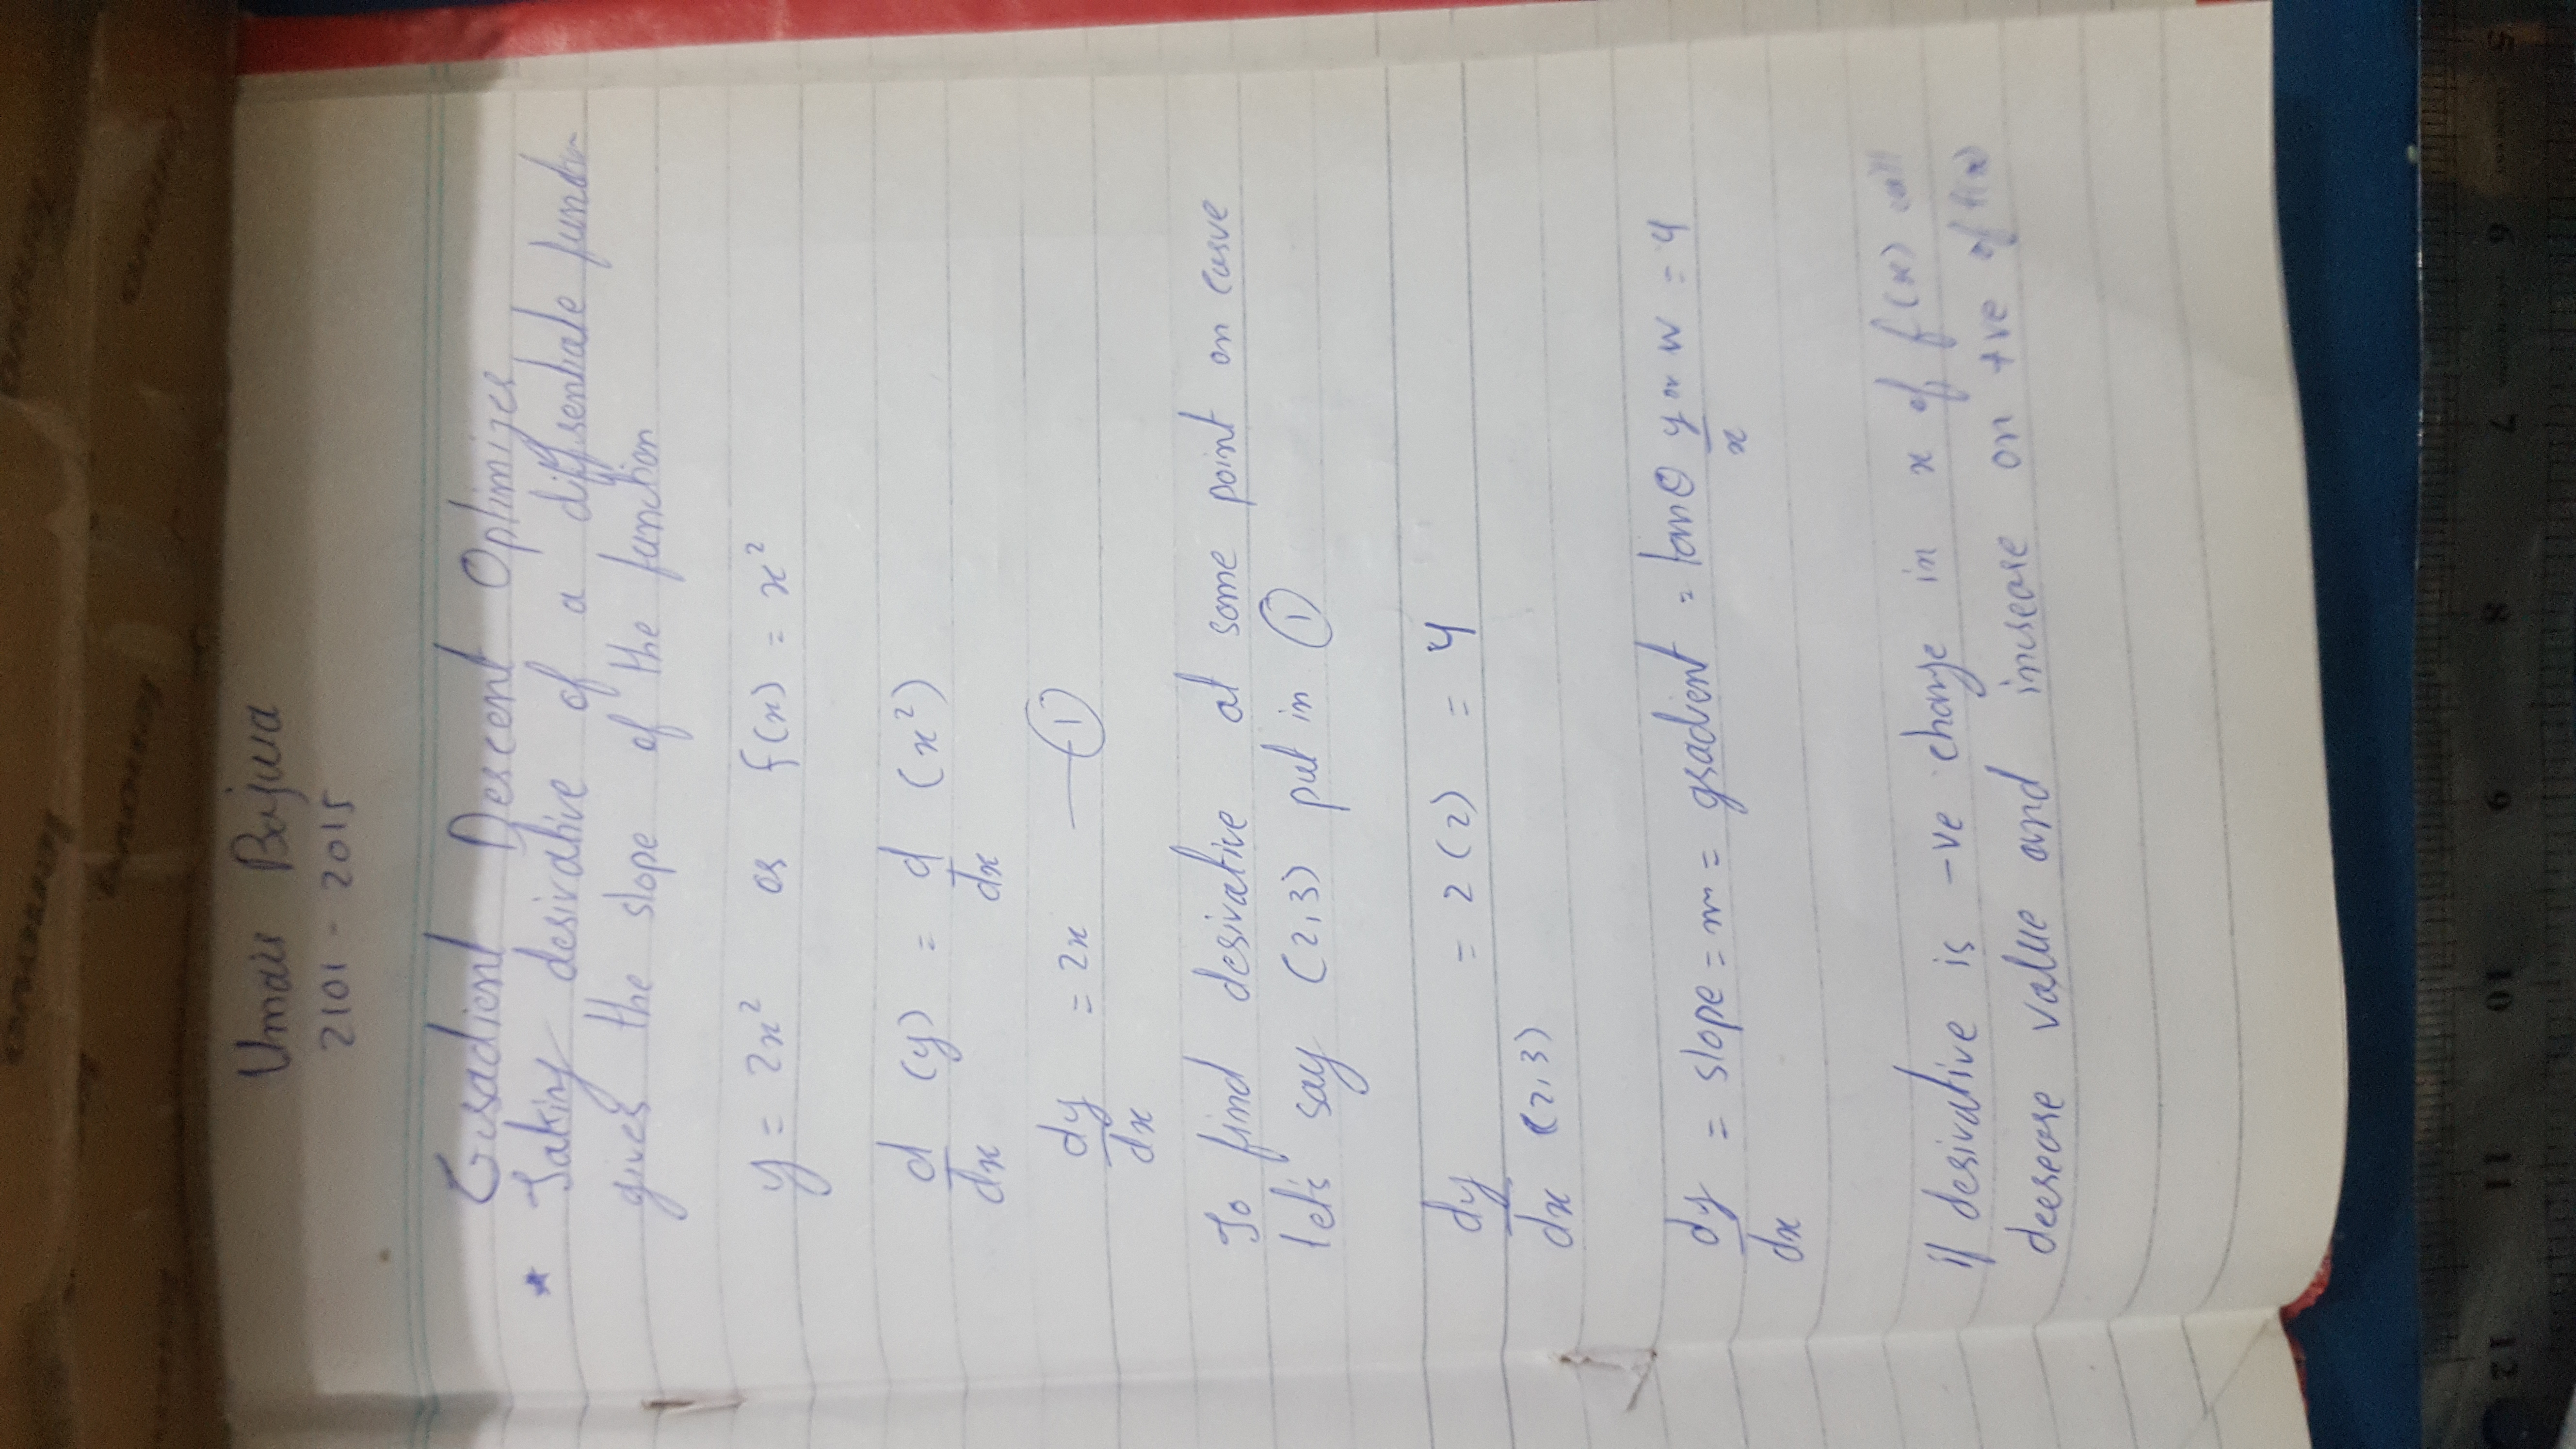 lenovo
lenovo
lenovo
lenovo
Umair Bajwa
2101 - 2015
Gradient Descent Optimizer
* Taking derivative of a diffrentiate function
gives the slope of the function
y = 2x² or f(x) = x²
d/dx (y) = d/dx (x²)
dy/dx = 2x — ①
To find derivative at some point on curve
let's say (2,3) put in ①
dy/dx (2,3) = 2(2) = 4
dy/dx = slope = m = gradient = tanθ y/x or w = 4
if derivative is -ve change in x of f(x) will
decrease value and increase on +ve of f(x)
12 11 10 9 8 7 6 5